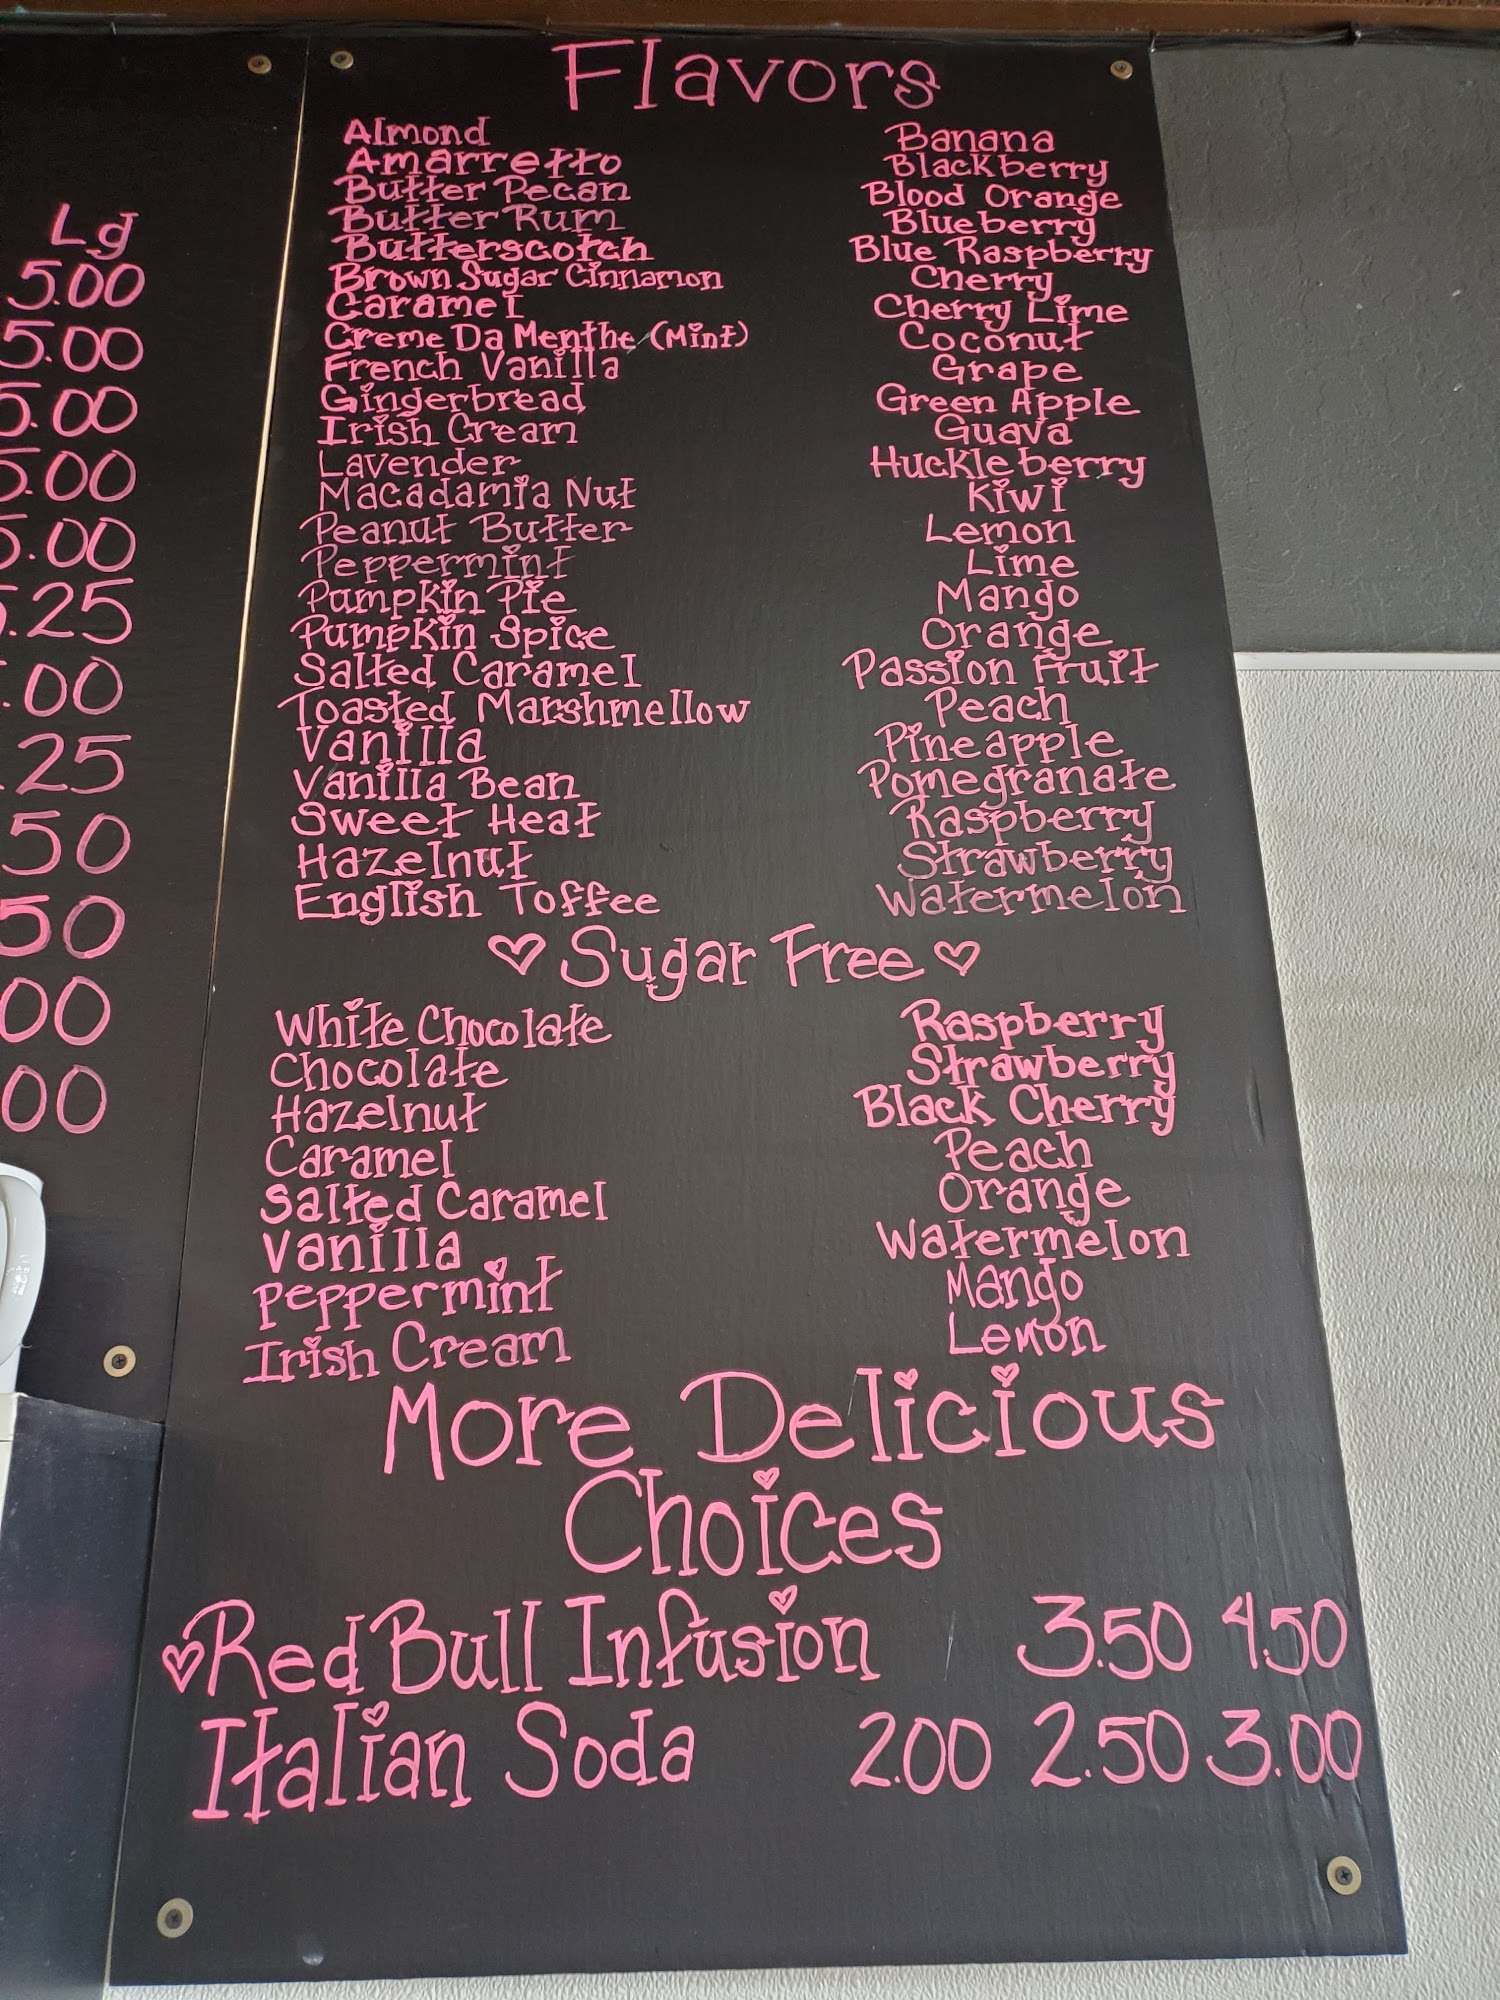 Lg
5.00
5.00
5.00
5.00
5.00
.25
.00
.25
50
50
00
00
Flavors
Almond
Amarretto
Butter Pecan
Butter Rum
Butterscotch
Brown Sugar Cinnamon
Caramel
Creme Da Menthe (Mint)
French Vanilla
Gingerbread
Irish Cream
Lavender
Macadamia Nut
Peanut Butter
Peppermint
Pumpkin Pie
Pumpkin Spice
Salted Caramel
Toasted Marshmellow
Vanilla
Vanilla Bean
Sweet Heat
Hazelnut
English Toffee
Banana
Blackberry
Blood Orange
Blueberry
Blue Raspberry
Cherry
Cherry Lime
Coconut
Grape
Green Apple
Guava
Huckleberry
Kiwi
Lemon
Lime
Mango
Orange
Passion Fruit
Peach
Pineapple
Pomegranate
Raspberry
Strawberry
Watermelon
♡ Sugar Free ♡
White Chocolate
Chocolate
Hazelnut
Caramel
Salted Caramel
Vanilla
Peppermint
Irish Cream
Raspberry
Strawberry
Black Cherry
Peach
Orange
Watermelon
Mango
Lemon
More Delicious
Choices
♡Red Bull Infusion 3.50 4.50
Italian Soda 2.00 2.50 3.00